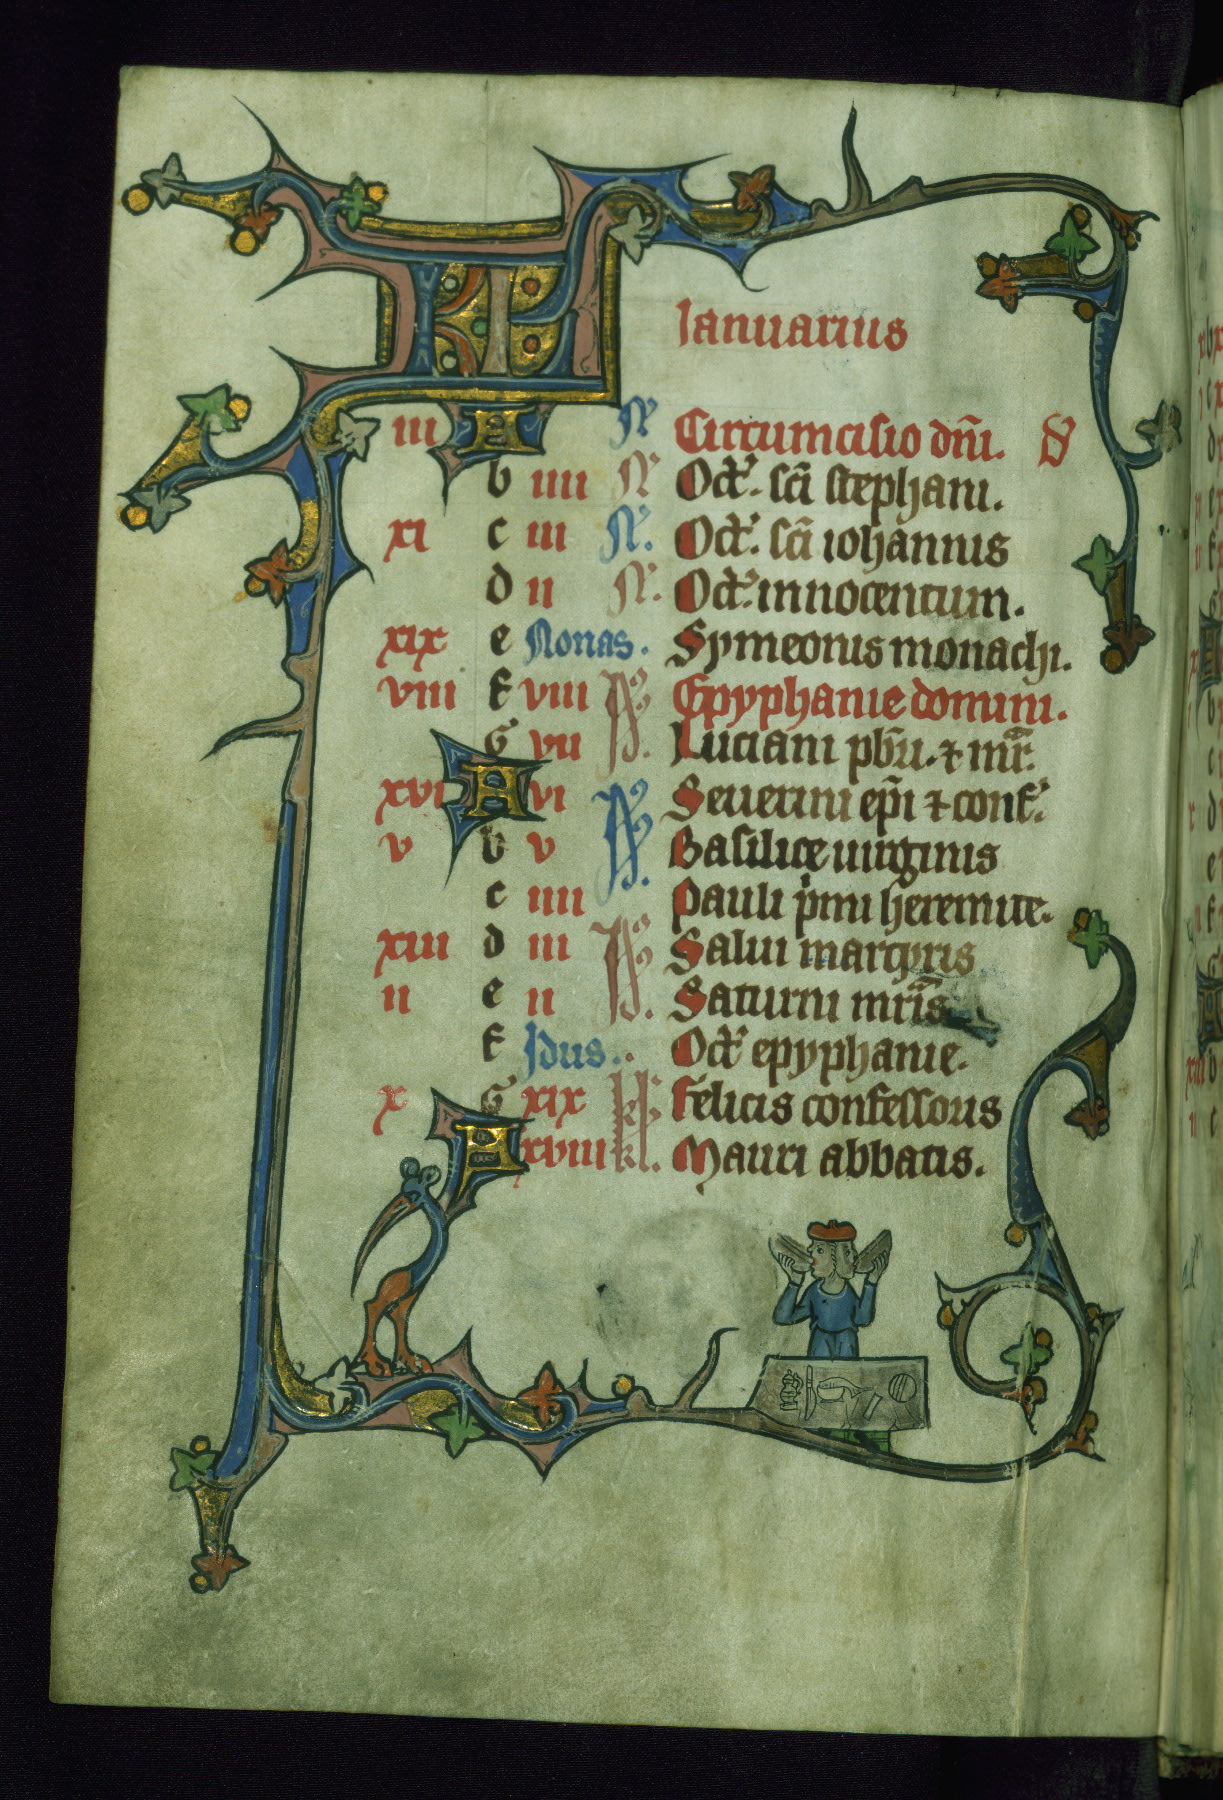 KL Ianuarius
iii A N Circumcisio dñi. S
b iiii N Oct̄. sc̄i stephani.
xi c iii N. Oct̄. sc̄i iohannis
d ii N. Oct̄. innocentum.
xix e Nonas. Symeonis monachi.
viii f viii Epyphanie domini.
G vii Luciani pb̄ri. ⁊ mr̄.
xvi A vi Seuerini ep̄i ⁊ conf̄.
v b v Basilice uirginis
c iiii Pauli p̄mi heremite.
xiii d iii Salui martyris
ii e ii Saturni mr̄is
f Idus. Oct̄ epyphanie.
x G xix kl. Felicis confessoris
A xviii kl. Mauri abbatis.